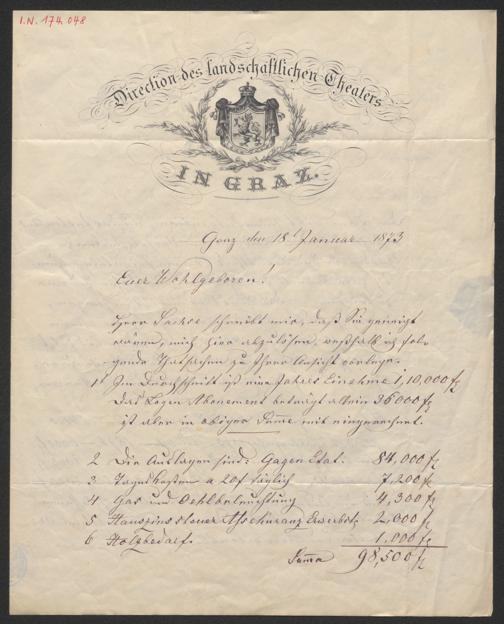 I.N. 174.048
Direction des landschaftlichen Theaters
IN GRAZ.
Graz den 18t Januar 1873
Euer Wohlgeboren!
Herr Sachse schreibt mir, daß Sie geneigt
wären, mich hier abzulösen, weßhalb ich fol-
gende Thatsachen zu Ihrer Ansicht vorlege.
1 Im Durchschnitt ist eine Jahres Einahme 1,10,000 fl
Das Logen Abonement beträgt allein 36000 fl
ist aber in obiger Summe mit eingerechnet.
2 Die Auslagen sind: Gagen Etat. 84,000 fl
3 Tageskosten a 20f täglich 7,200 fl
4 Gas und Oehlbeleuchtung 4,300 fl
5 Hauszinssteuer Assekuranz Erwerbst. 2,000 fl
6 Holzbedarf. 1,000 fl
Summa 98,500 fl